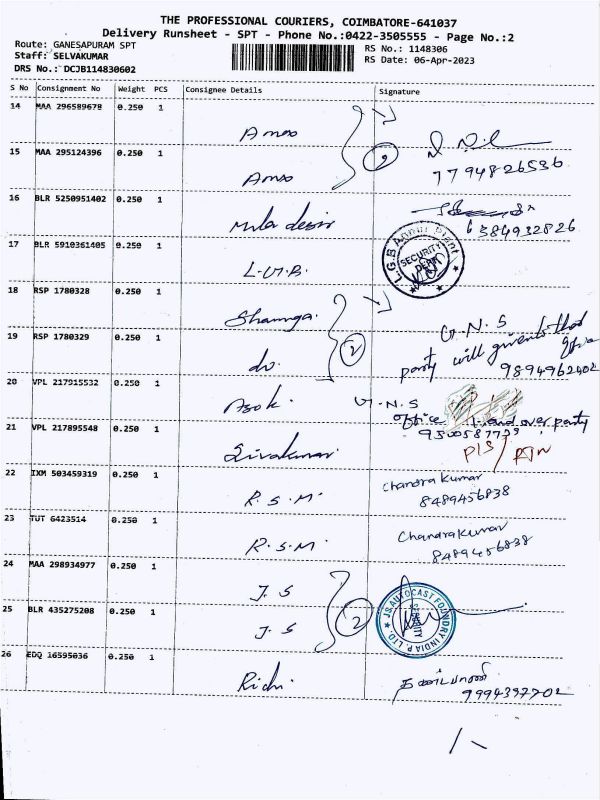 THE PROFESSIONAL COURIERS, COIMBATORE-641037
Delivery Runsheet - SPT - Phone No.:0422-3505555 - Page No.:2
Route: GANESAPURAM SPT
Staff: SELVAKUMAR
DRS No.: DCJB114830602
RS No.: 1148306
RS Date: 06-Apr-2023
S No Consignment No Weight PCS Consignee Details Signature
14 MAA 296589678 0.250 1
15 MAA 295124396 0.250 1
2
7794826536
16 BLR 5250951402 0.250 1
6384932826
17 BLR 5910361405 0.250 1 L.G.B.
L.G.B Annur Plant
SECURITY
DEPT
18 RSP 1780328 0.250 1
G.N.S
19 RSP 1780329 0.250 1 do.
2
party will
9894962402
20 VPL 217915532 0.250 1 Asok.
G.N.S
office Hand over party
21 VPL 217895548 0.250 1 Sivakumar.
9500587779
22 IXM 503459319 0.250 1 R.S.M.
Chandra Kumar
8489456838
23 TUT 6423514 0.250 1 R.S.M.
Chandrakumar
8489456838
24 MAA 298934977 0.250 1 J.S
25 BLR 435275208 0.250 1 J.S
2
JS AUTOCAST FOUNDRY INDIA P. LTD.
SECURITY
26 EDQ 16595036 0.250 1
9994397702